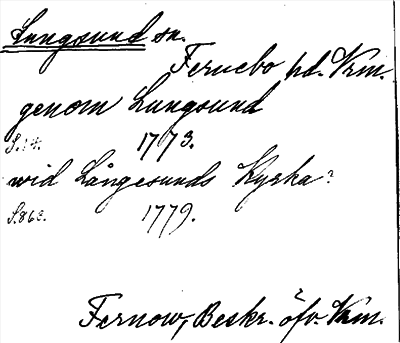 Lungsund sn.
Fernebo hd. Vrm.
genom Lungsund
S.14. 1773.
wid Långesunds Kyrka?
S.863. 1779.
Fernow, Beskr. öfv. Vrm.